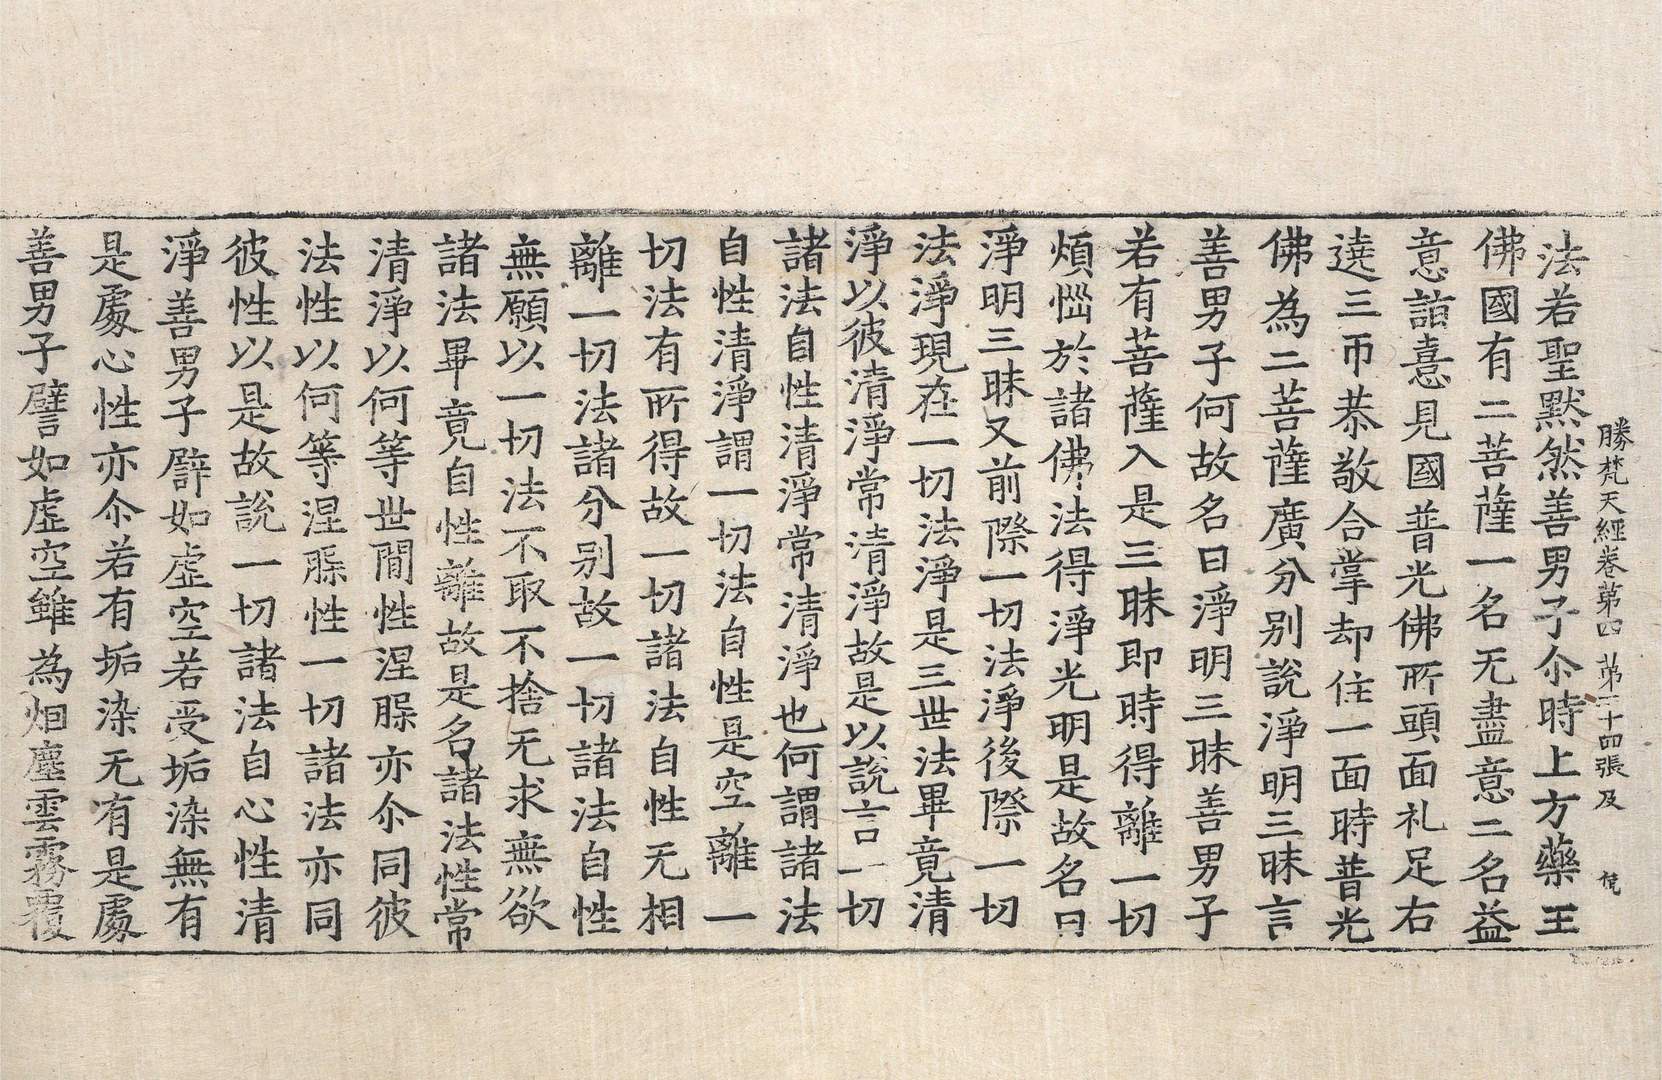 勝梵天經卷第四 第二十四張 及 梵
法若聖默然善男子尒時上方藥王
佛國有二菩薩一名无盡意二名益
意詣憙見國普光佛所頭面礼足右
遶三帀恭敬合掌却住一面時普光
佛為二菩薩廣分别說淨明三昧言
善男子何故名曰淨明三昧善男子
若有菩薩入是三昧即時得離一切
煩惱於諸佛法得淨光明是故名曰
淨明三昧又前際一切法淨後際一切
法淨現在一切法淨是三世法畢竟清
淨以彼清淨常清淨故是以說言一切
諸法自性清淨常清淨也何謂諸法
自性清淨謂一切法自性是空離一
切法有所得故一切諸法自性无相
離一切法諸分别故一切諸法自性
無願以一切法不取不捨无求無欲
諸法畢竟自性離故是名諸法性常
清淨以何等世間性涅槃亦尒同彼
法性以何等涅槃性一切諸法亦同
彼性以是故說一切諸法自心性清
淨善男子譬如虛空若受垢染無有
是處心性亦尒若有垢染无有是處
善男子譬如虛空雖為烟塵雲霧覆